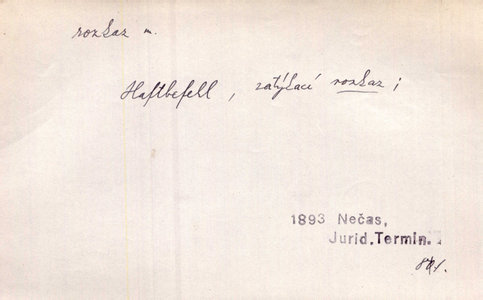 rozkaz m.
Haftbefehl, zatýkací rozkaz;
1893 Nečas,
Jurid. Termin.